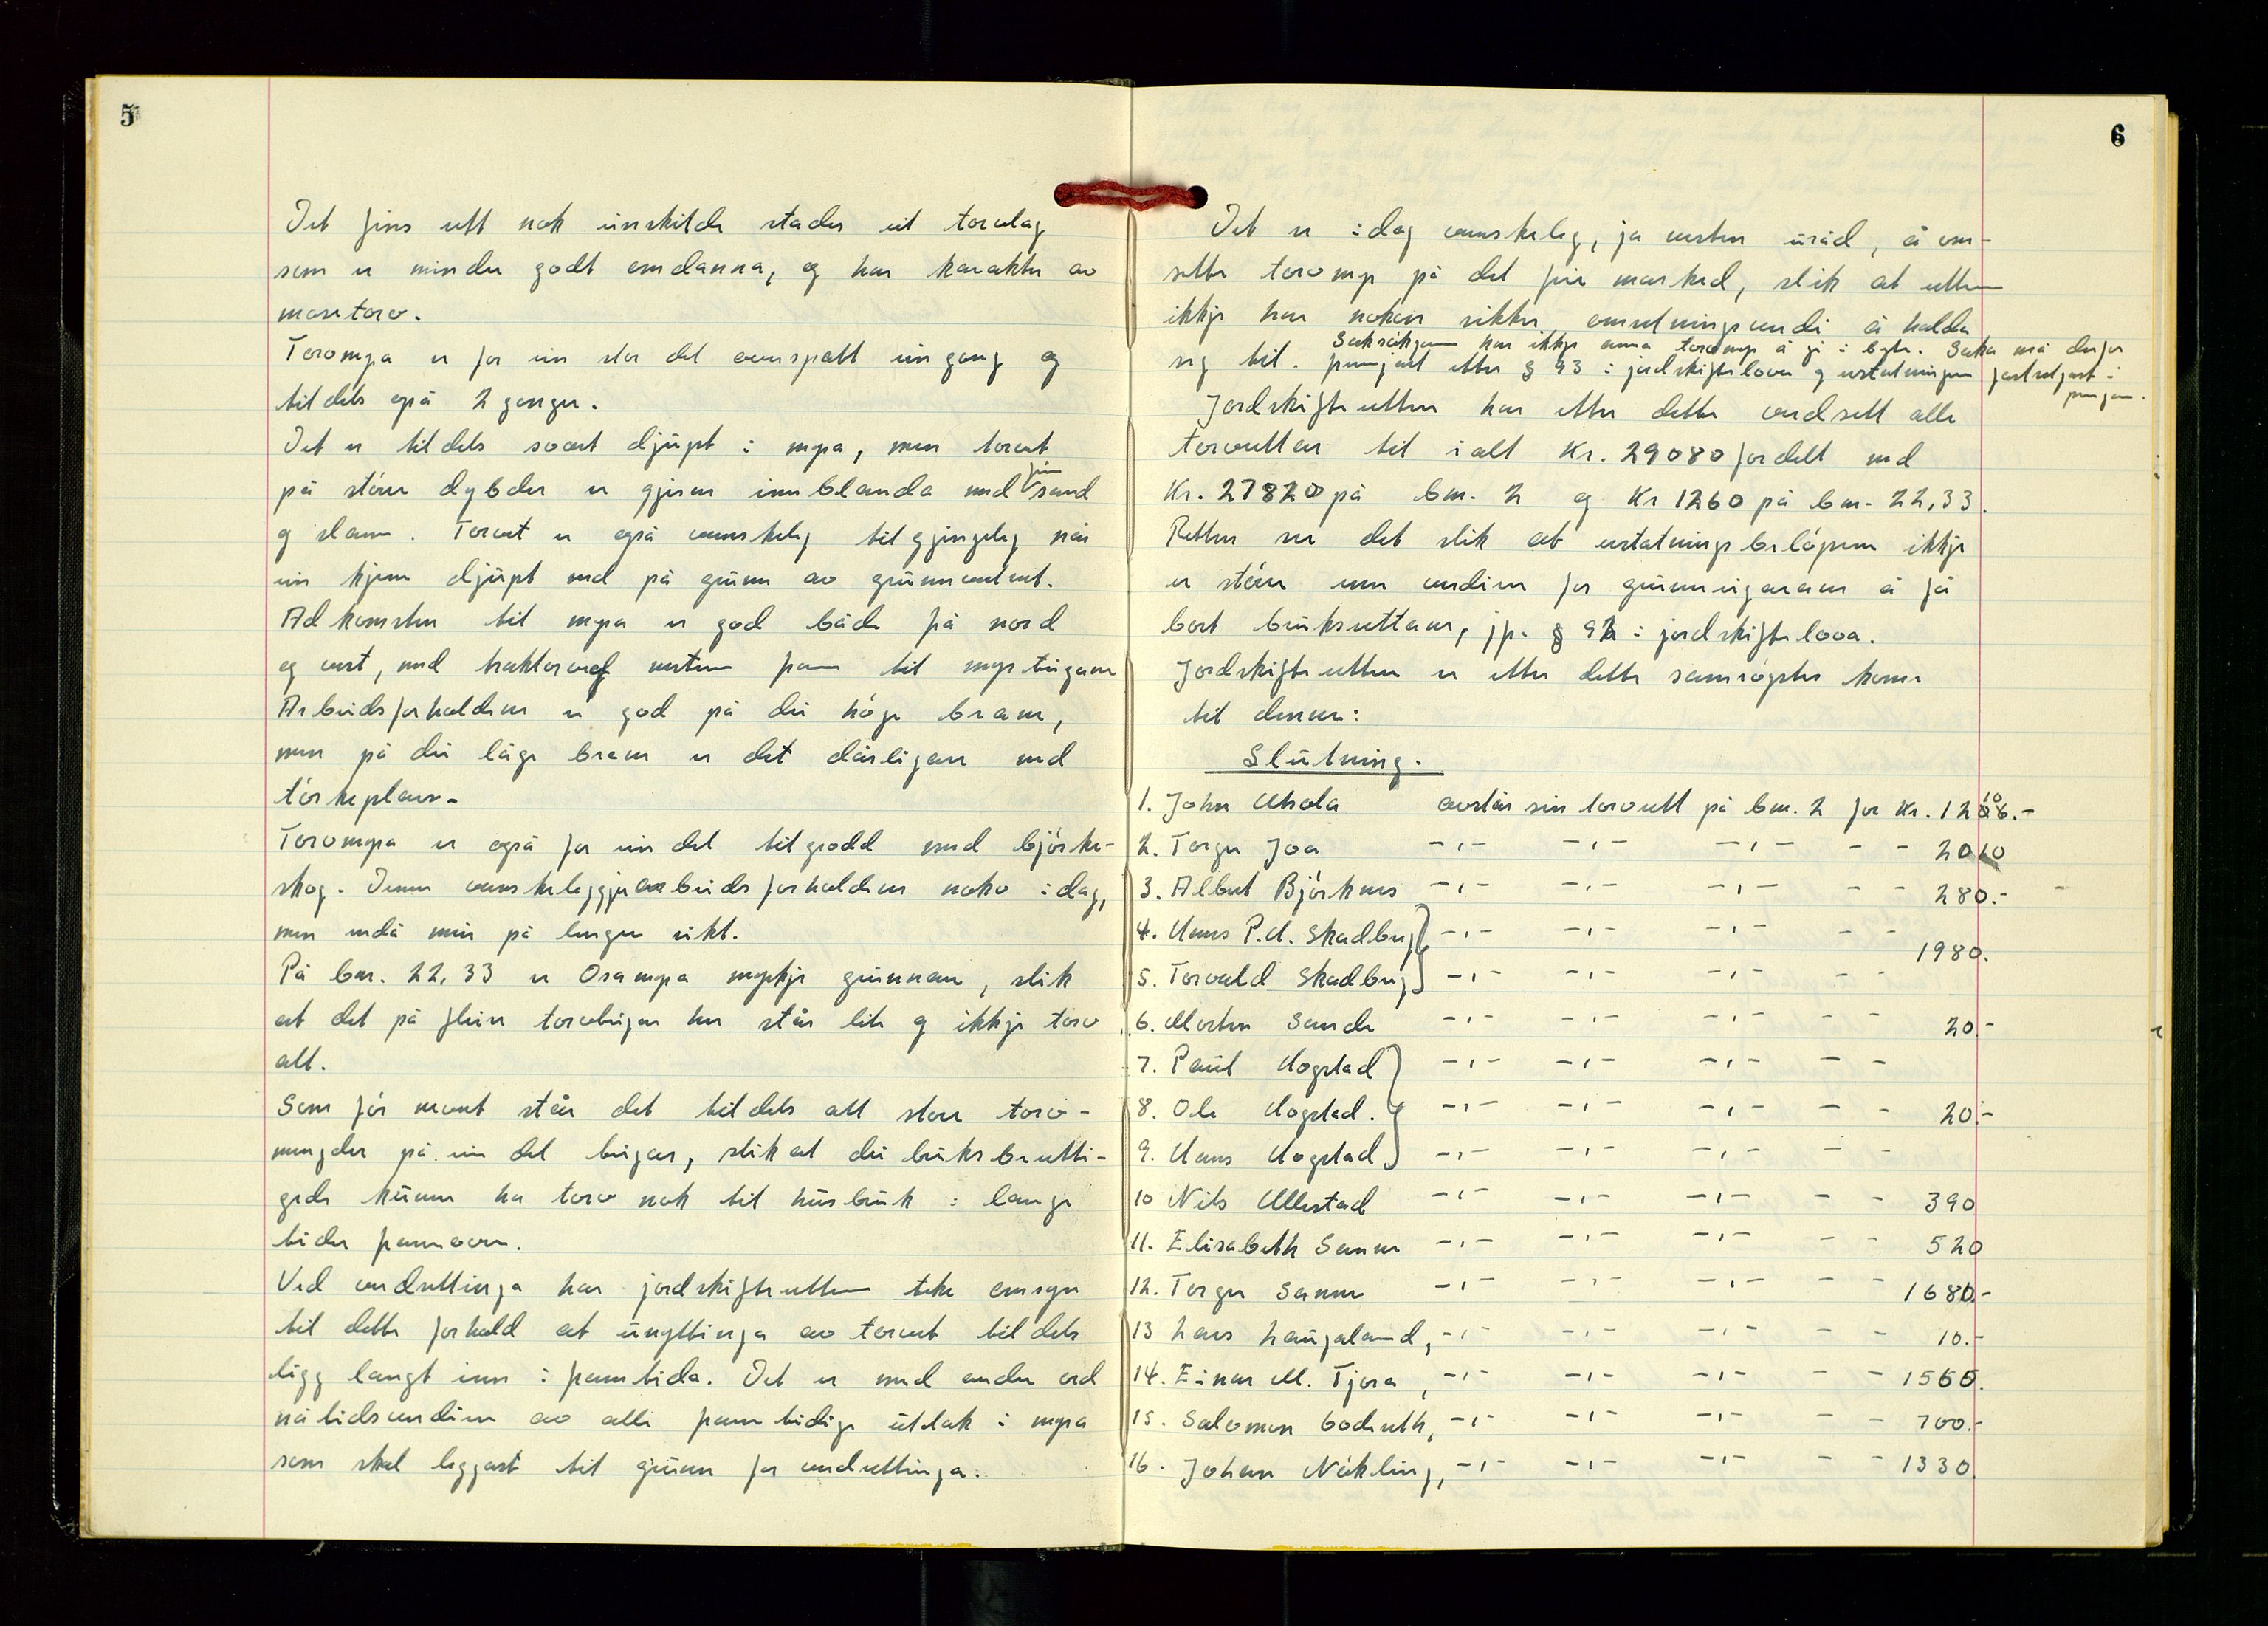 5
Det fins ett nok einskilde stader eit torvlag
som er mindre godt omdanna, og har karakter av
mosetorv.
Torvmyra er for ein stor del avspatt ein gang og
tildels opå 2 gonger.
Det er tildels svært djupt i myra, men torvet
på større dybder er gjerne innblanda med fin sand
og slam. Torvet er også vanskeleg tilgjengeleg når
ein kjem djupt ned på grunn av grunnvatnet.
Adkomsten til myra er god både frå nord
og vest, med traktorveg nesten fram til myrteigane
Arbeidsforholdene er god på dei høge brane,
men på dei låge brane er det dårligare med
tørkeplass.
Torvmyra er også for ein del tilgrodd med bjørke-
skog. Denne vanskeleggjer arbeidsforholdene noko idag,
men endå meir på lenger sikt.
På bm. 22, 33 er Osamyra mykje grunnare, slik
at det på fleire torvteigar her står lite og ikkje torv
att.
Som før nemnt står det tildels att store torv-
mengder på ein del teigar, slik at dei bruksberetti-
gede kunne ha torv nok til husbruk i lange
tider framover.
Ved verdsettinga har jordskifteretten teke omsyn
til dette forhold at unyttinga av torvet tildels
ligg langt inn i framtida. Det er med andre ord
nåtidsverdien av alle framtidige uttak i myra
som skal leggjast til grunn for verdsettinga.
6
Det er idag vanskeleg, ja nesten uråd, å om-
sette torvmyr på det frie marked, slik at retten
ikkje har nokon sikker omsetningsverdi å halda
seg til. Saksøkjarane har ikkje anna torvmyr å gi i byte. Saka må derfor
fremjast etter § 93 i jordskiftelova og erstatningen fastsetjast i
pengar.
Jordskifteretten har etter dette verdsett alle
torvretter til ialt Kr. 29080 fordelt med
Kr. 27820 på bm. 2 og Kr 1260 på bm. 22, 33.
Retten ser det slik at erstatningsbeløpene ikkje
er større enn verdien for grunneigarane å få
bort bruksrettane, jfr. § 92 i jordskiftelova.
Jordskifteretten er etter dette samrøystes kome
til denne:
Slutning.
1. John Uhola avstår sin torvrett på bm. 2 for Kr. 1210.-
2. Torger Joa -,- -,- -,- - - 2010
3. Albert Bjørknes -,- -,- -,- - - 280.-
4. Hans P.H. Skadberg -,- -,- -,- - -
1980.
5. Torvald Skadberg -,- -,- -,- - -
6. Morten Sande -,- -,- -,- - - 20.-
7. Paul Hogstad -,- -,- -,- - -
8. Ole Hogstad. -,- -,- -,- - - 20.-
9. Hans Hogstad -,- -,- -,- - -
10 Nils Ullestad -,- -,- -,- - - 390
11. Elisabeth Sanne -,- -,- -,- - - 520
12. Torger Sanne -,- -,- -,- - - 1680.-
13 Lars Haugaland, -,- -,- -,- - - 10.-
14. Einar M. Tjora, -,- -,- -,- - - 1560.
15. Salomon Goderuth, -,- -,- -,- - - 700.-
16. Johan Nækling, -,- -,- -,- - - 1330.